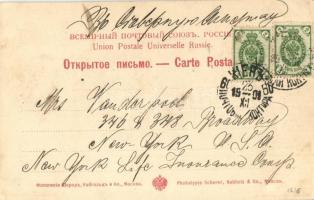 Въ Сѣверную Америку
ВСЕМІРНЫЙ ПОЧТОВЫЙ СОЮЗЪ. РОССІЯ
Union Postale Universelle Russie.
Открытое письмо. — Carte Posta
КІЕВЪ
25
XI
Mrs Vanderpool
346 & 348 Broadway
New York U.S.
New York Life Insurance Comp
Фототипія Шерера, Набгольцъ и Ко., Москва.
Phototypie Scherer, Nabholz & Co., Moscou.